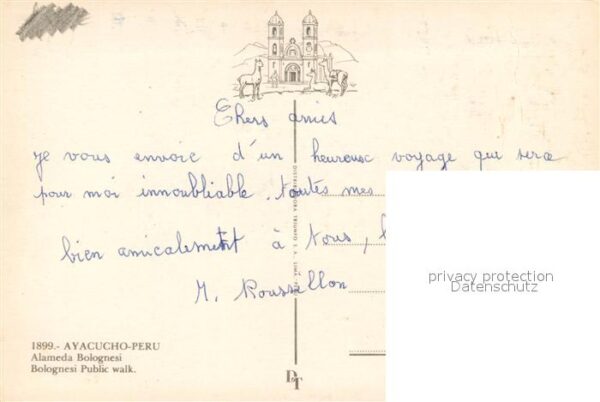 Chers amis
je vous envoie d'un heureux voyage qui sera
pour moi innoubliable. toutes mes
bien amicalement à tous,
M. Roussillon
DISTRIBUIDORA TRIUNFO S.A. LIMA
1899.- AYACUCHO-PERU
Alameda Bolognesi
Bolognesi Public walk.
DT
privacy protection
Datenschutz